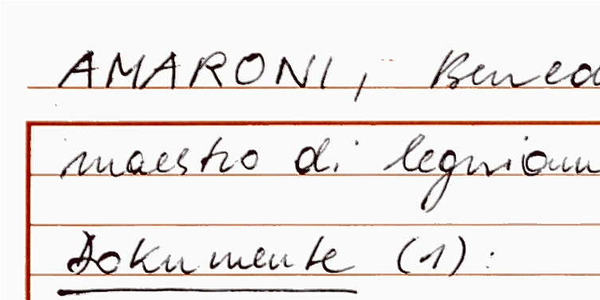 AMARONI, Bened
maestro di legniam
Dokumente (1):